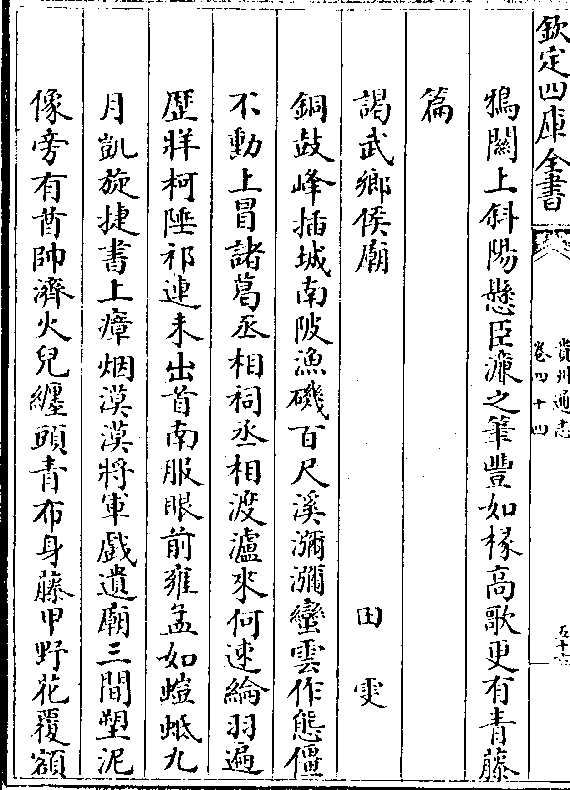 欽定四庫全書
貴州通志
卷四十四
五十六
鴉關上斜陽懸臣濂之筆豐如椽高歌更有青藤
篇
謁武鄉侯廟 田雯
銅鼓峰插城南陂漁磯百尺溪瀰瀰蠻雲作態僵
不動上冒諸葛丞相祠丞相渡瀘來何速綸羽遍
歷牂柯陲祁連未出首南服眼前雍孟如螘蚳九
月凱旋捷書上瘴烟漠漠將軍戲遺廟三間塑泥
像旁有酋帥濟火兒纏頭青布身藤甲野花覆額